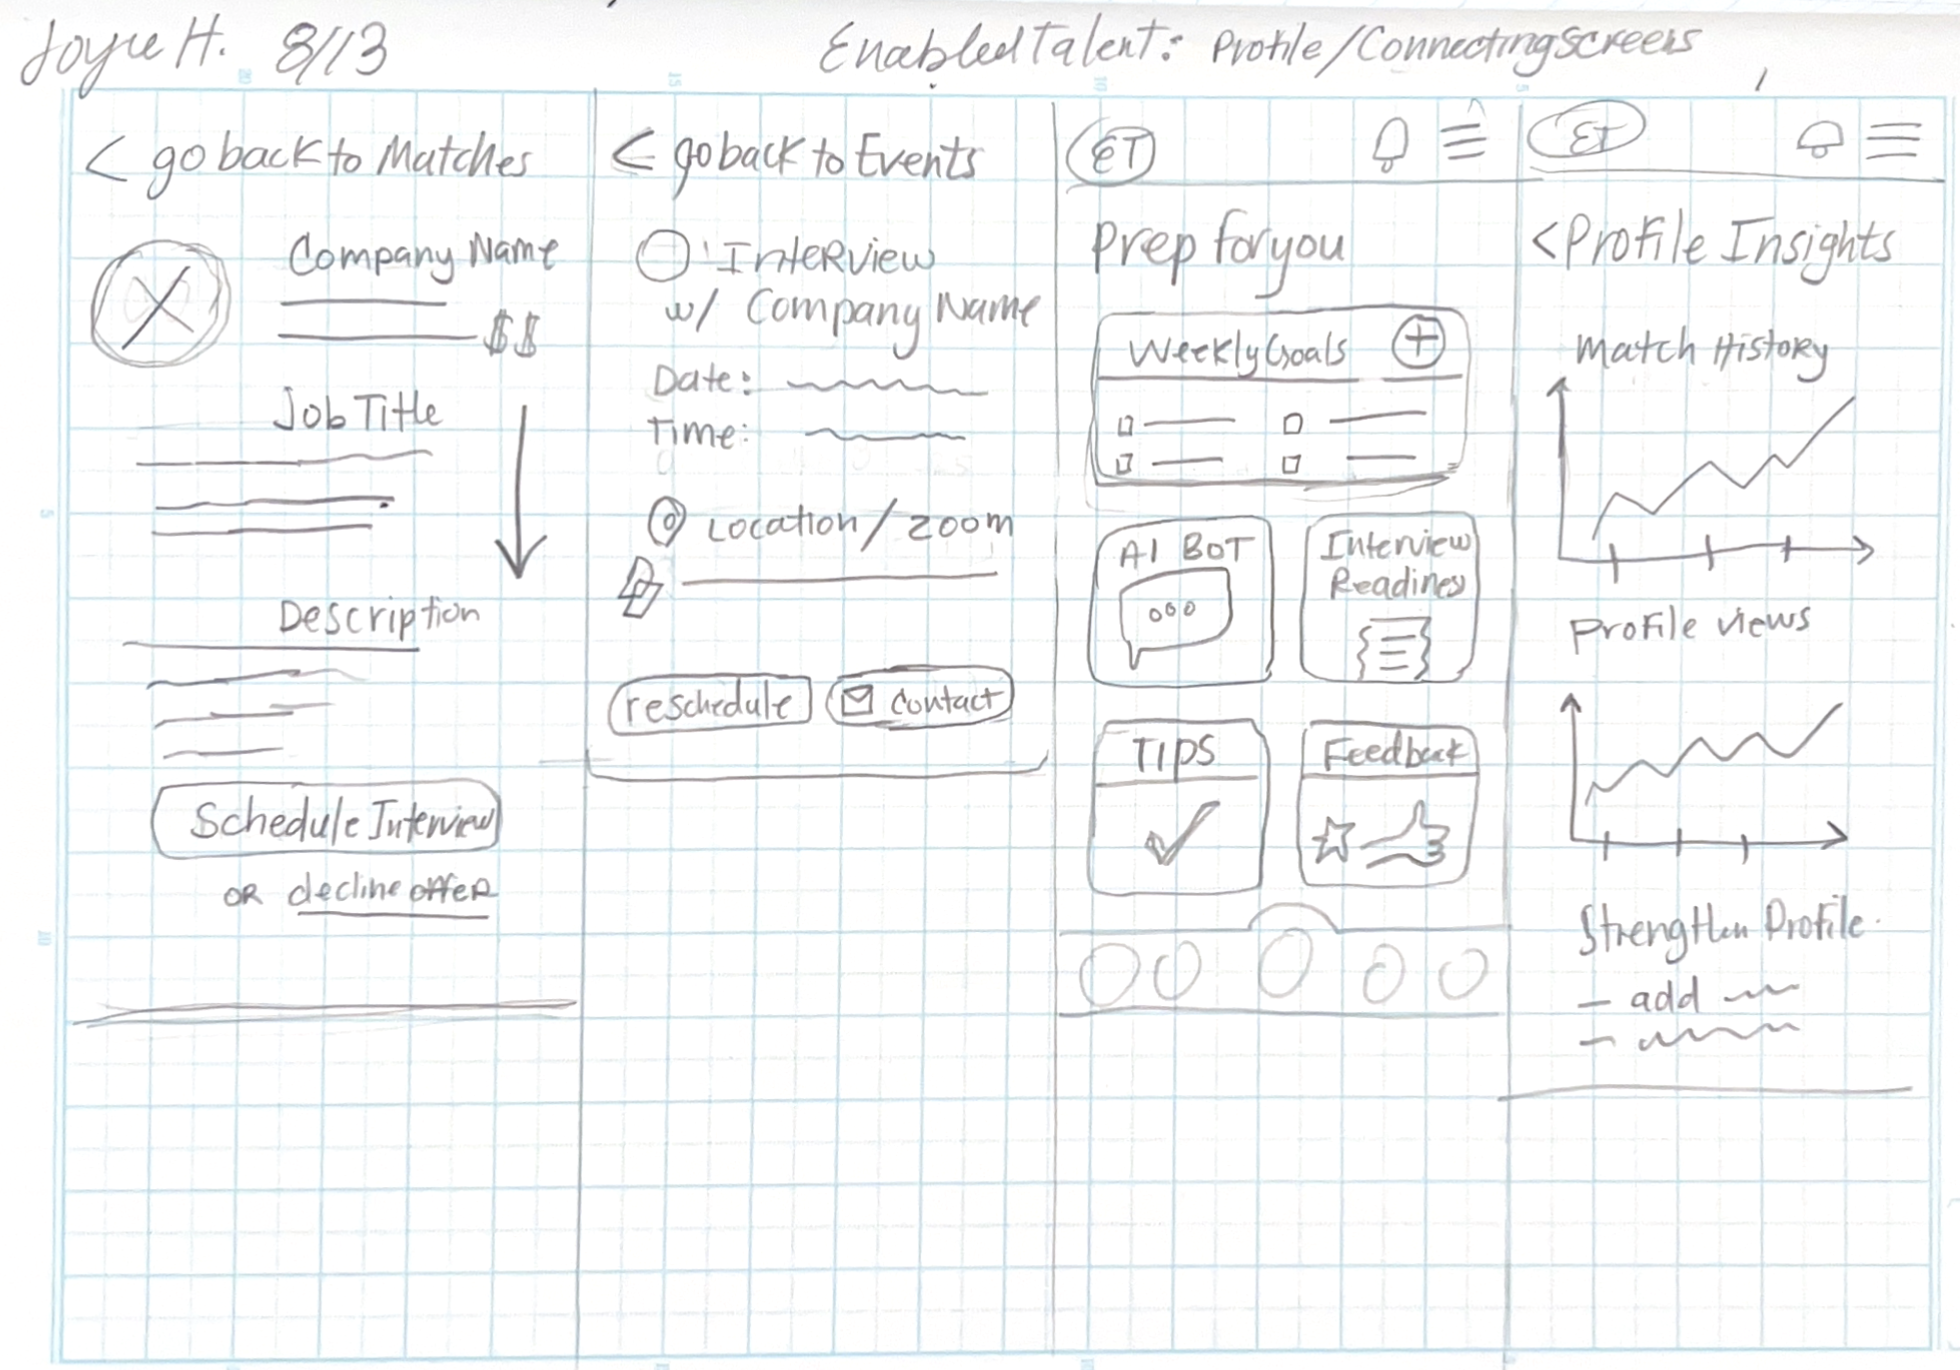 Joyce H. 8/13
EnabledTalent: Profile/Connecting screens
20
15
10
5
5
10
< go back to Matches
Company Name
$$
Job Title
Description
Schedule Interview
OR decline offer
< go back to Events
Interview
w/ Company Name
Date:
Time:
Location / Zoom
reschedule
contact
ET
Prep for you
Weekly Goals +
AI BOT
Interview
Readiness
TIPS
Feedback
ET
< Profile Insights
Match History
Profile views
Strengthen Profile
- add